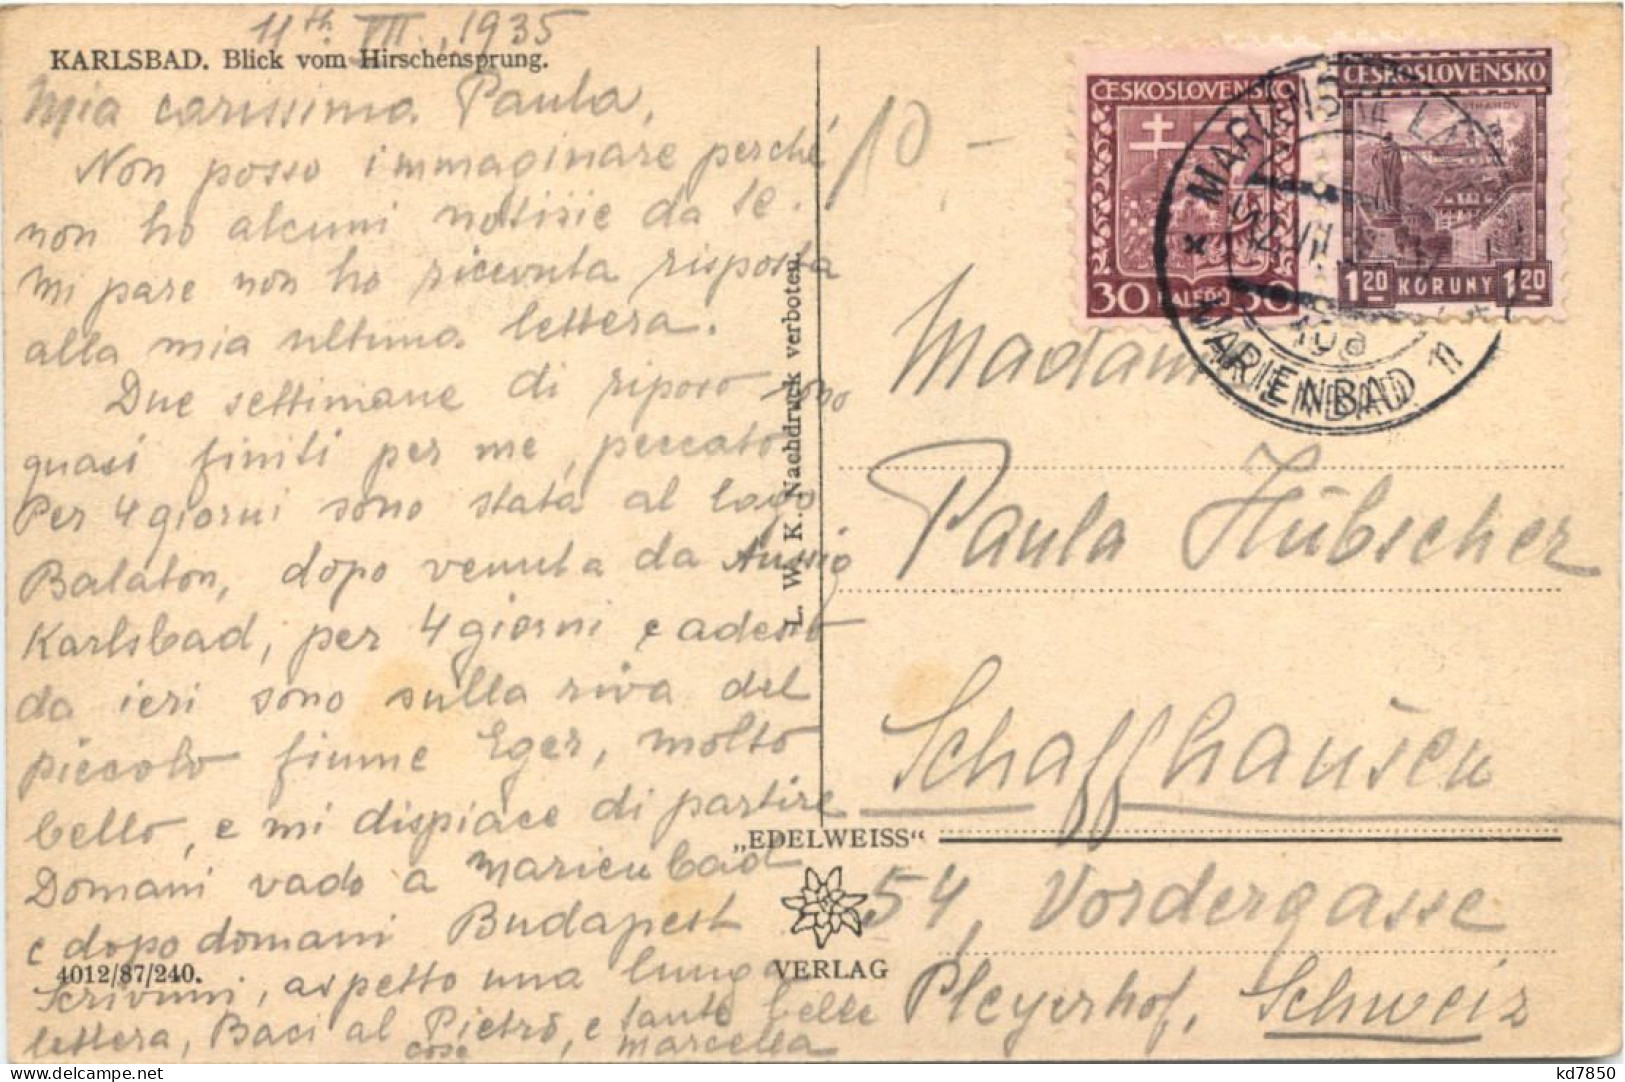 11th VII. 1935
KARLSBAD. Blick vom Hirschensprung.
Mia carissima Paula,
Non posso immaginare perché
non ho alcuni notisie da te.
Mi pare non ho ricevuta risposta
alla mia ultima lettera.
Due settimane di riposo sono
quasi finiti per me, peccato
Per 4 giorni sono stata al lago
Balaton, dopo venuta da Aussig
Karlsbad, per 4 giorni e adesso
da ieri sono sulla riva del
piccolo fiume Eger, molto
bello, e mi dispiace di partire
Domani vado a Marienbad
e dopodomani Budapest
4012/87/240.
Scrivimi, aspetto una lunga
lettera, Baci al Pietro, e tante belle
cose Marcella
L. W. K. Nachdruck verboten.
„EDELWEISS“
VERLAG
10 -
ČESKOSLOVENSKO
30 HALÉŘŮ 30
ČESKOSLOVENSKO
STRAHOV
1.20 KORUNY 1.20
MARIÁNSKÉ LÁZNĚ
MARIENBAD 11
Madame
Paula Hübscher
Schaffhausen
54, Vordergasse
Pleyerhof, Schweiz
kd7850